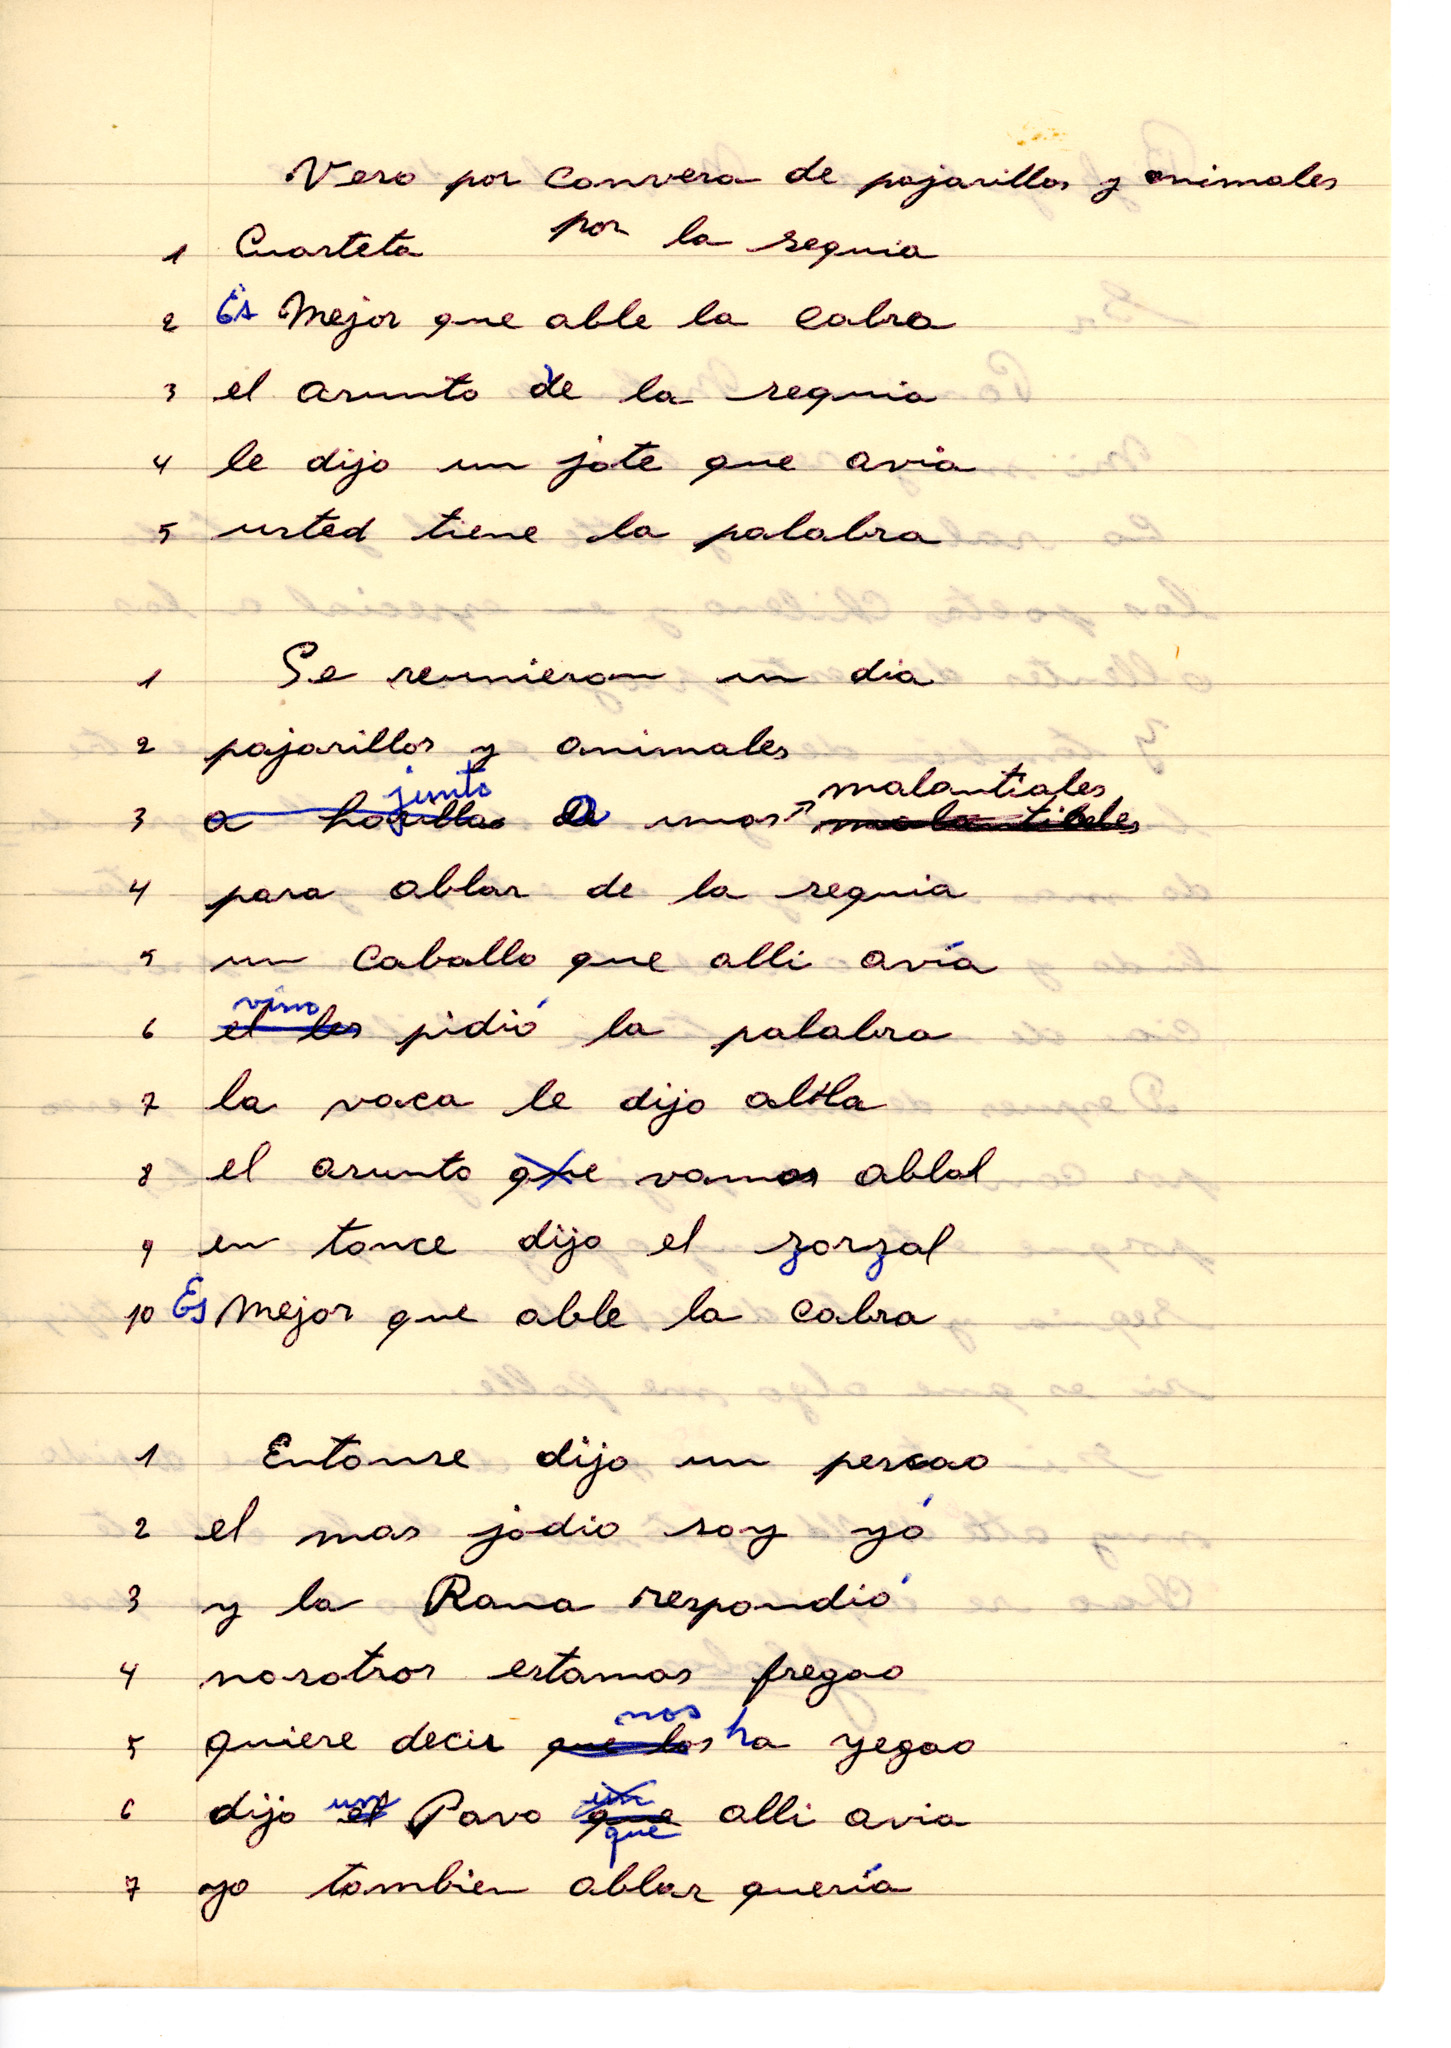 Verso por conversa de pajarillos y animales
1 Cuarteta por la sequia
2 Es Mejor que able la cabra
3 el asunto de la sequia
4 le dijo un jote que avia
5 usted tiene la palabra
1 Se reunieron un dia
2 pajarillos y animales
3 a horillas junto a unos malantiales malantiales
4 para ablar de la sequia
5 un caballo que alli avía
6 el les vino pidió la palabra
7 la vaca le dijo alila
8 el asunto que vamos ablal
9 en tonce dijo el zorzal
10 Es Mejor que able la cabra
1 Entonse dijo un pescao
2 el mas jodio soy yó
3 y la Rana respondió
4 nosotros estamos fregao
5 quiere decir que los nos ha yegao
6 dijo el un Pavo que un que alli avia
7 yo tambien ablar quería